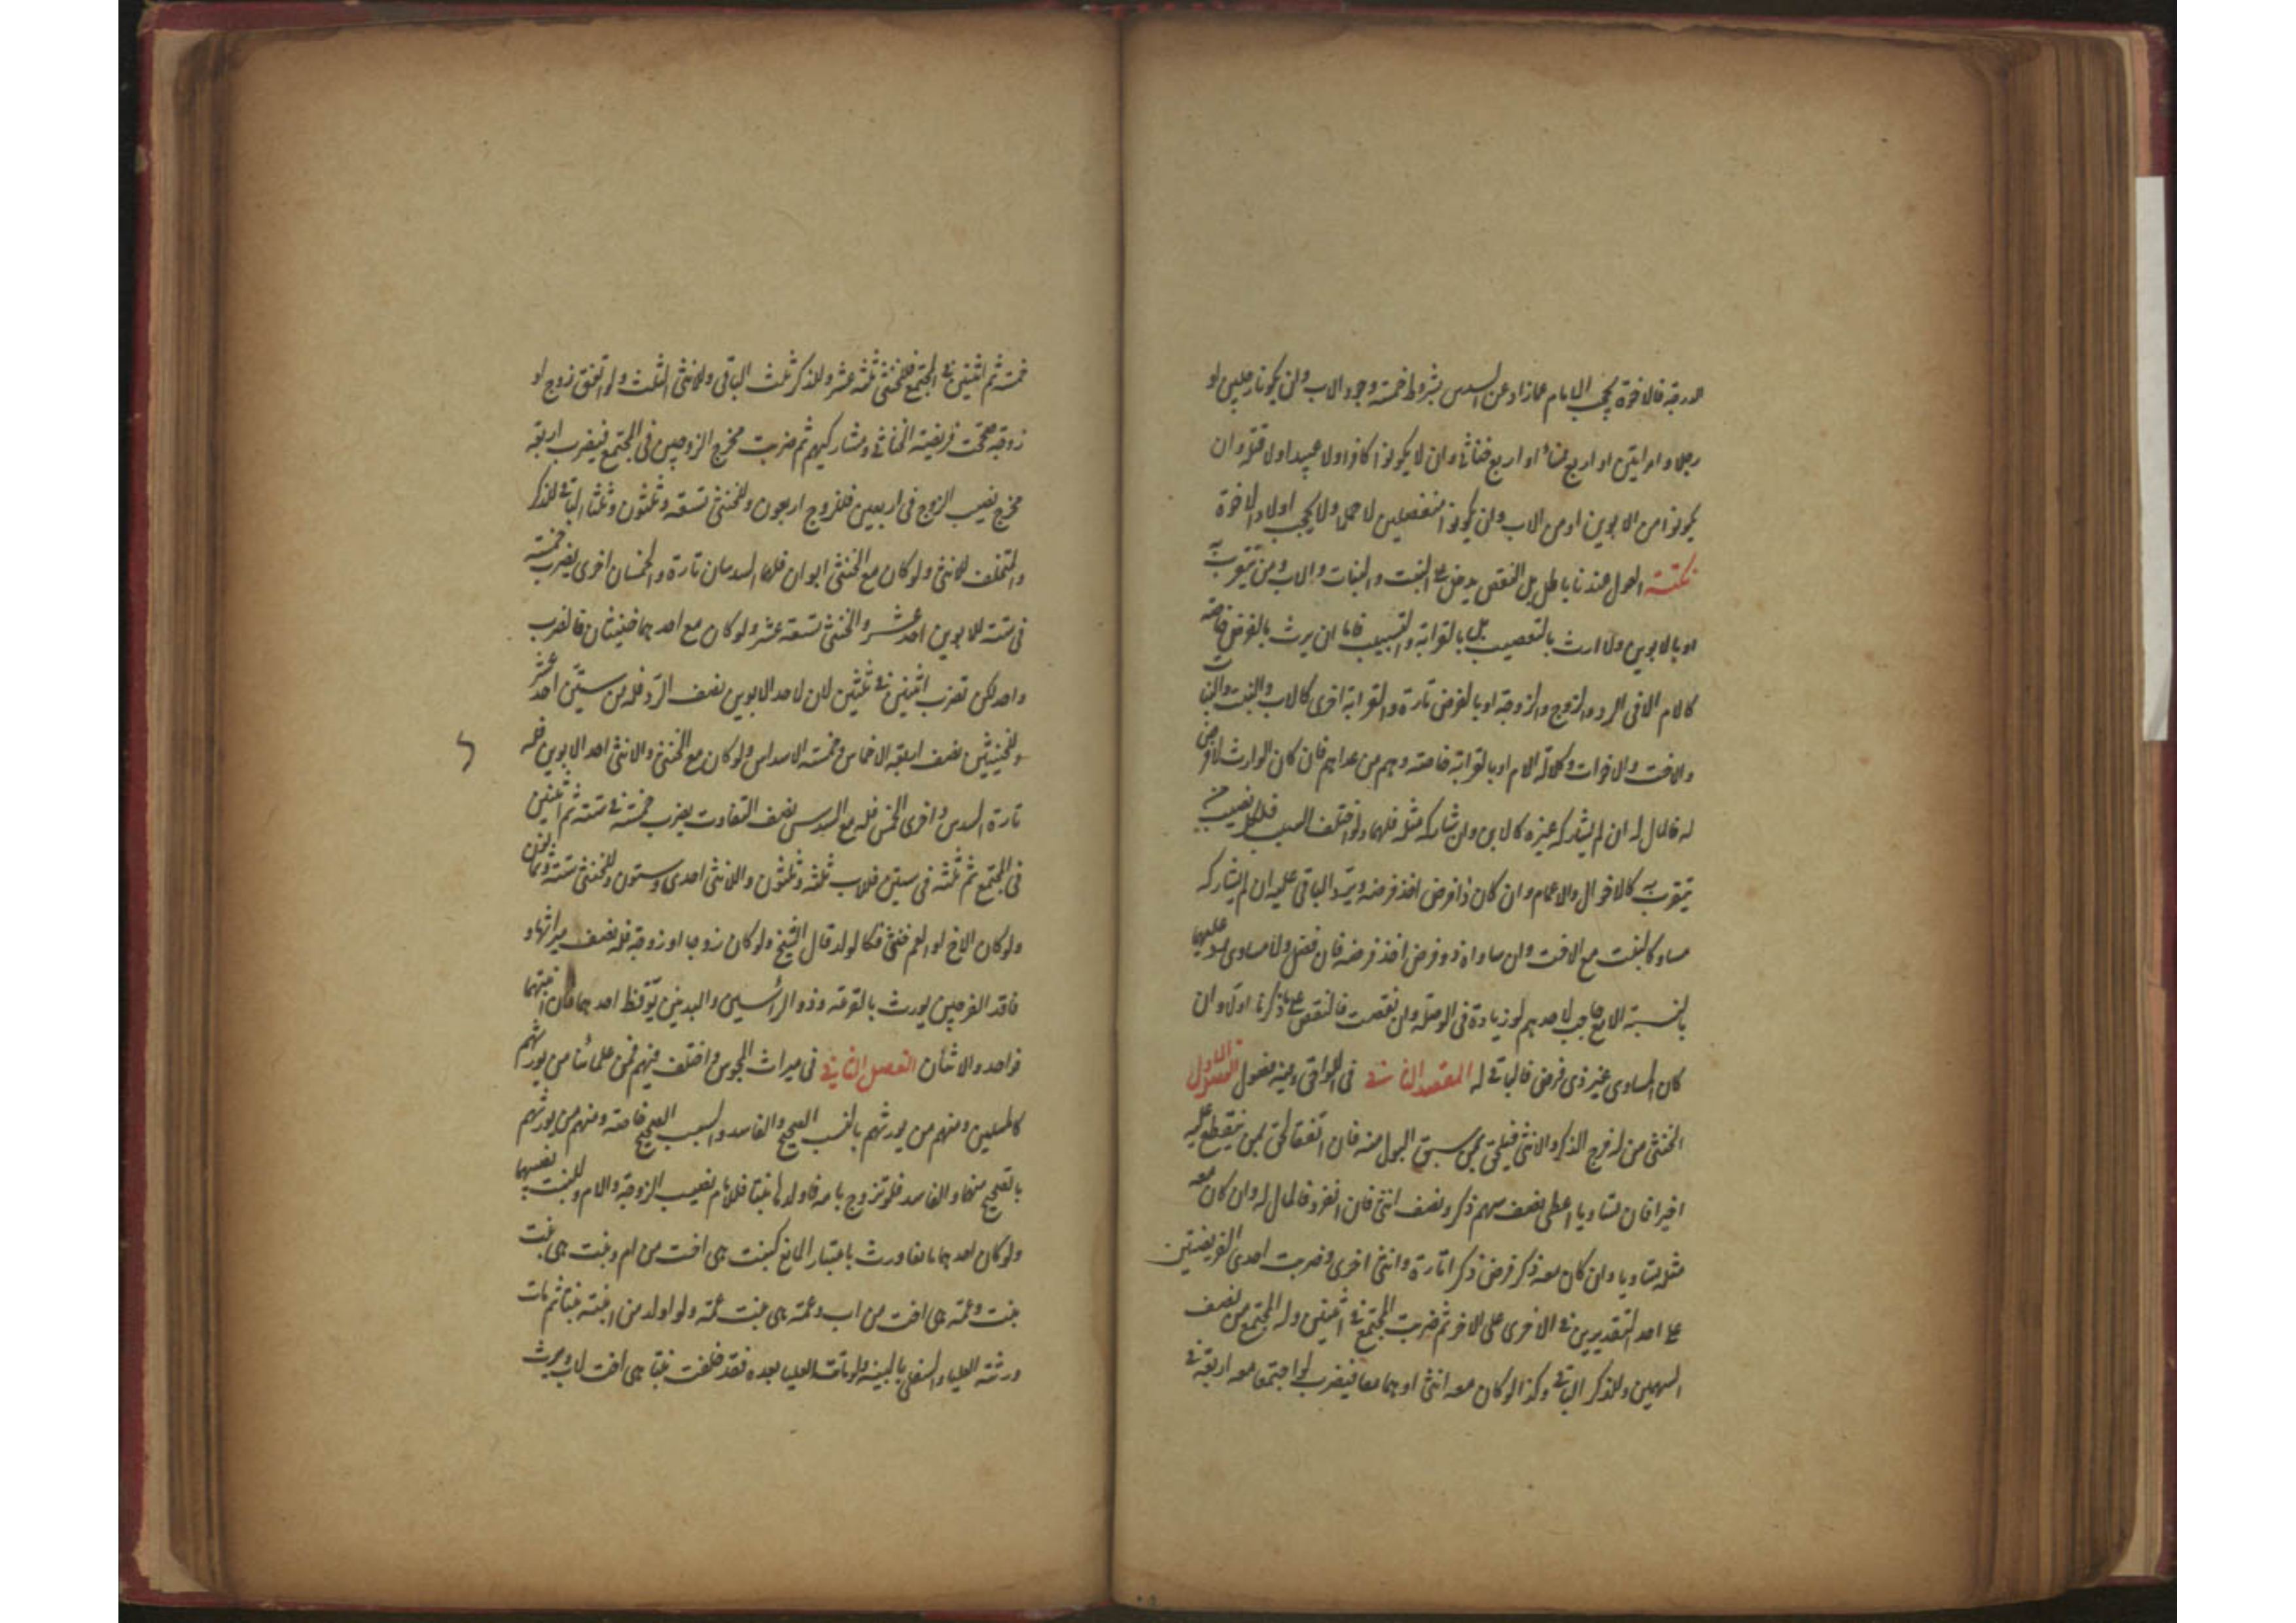 الدرجة فالاخوة يحجب الامام عمازاد عن السدس بشروط خمسة وجود الاب وان يكونا رجلين او
رجلا وامراتين او اربع نساء او اربع خناثى وان لا يكونوا كفارا ولا عبيدا ولا قتلة وان
يكونوا من الابوين او من الاب وان يكونوا منفصلين لا حملا ولا يحجب اولاد الاخوة
نكتة العول عندنا باطل بل النقص يدخل على البنت والبنات والاب ومن يتقرب به
او بالابوين ولا ارث بالتعصيب بل بالقرابة والتسبيب فاما ان يرث بالفرض خاصة
كالام الا فى الرد والزوج والزوجة او بالفرض تارة والقرابة اخرى كالاب والبنت والبنات
والاخت والاخوات وكلالة الام او بالقرابة خاصة وهم من عداهم فان كان الوارث لا فرض
له فالمال له ان لم يشاركه غيره كالابن وان شاركه مثله فلهما ولو اختلف السبب فلكل نصيب من
يتقرب به كالاخوال والاعمام وان كان ذا فرض اخذ فرضه ويرد الباقى عليه ان لم يشاركه
مساو كالبنت مع الاخت وان ساواه ذو فرض اخذ فرضه فان فضل ولا مساوى رد عليهما
بالنسبة الا مع حاجب لاحدهم او زيادة فى الوصلة وان نقصت فالنقص على ما ذكرنا اولا وان
كان المساوى غير ذى فرض فالباقى له المقصد الثانى فى اللواحق وفيه فصول الفصل الاول
الخنثى من له فرج الذكر والانثى فيلحق بمن سبق البول منه فان اتفقا لحق بمن ينقطع عليه
اخيرا فان تساويا اعطى نصف سهم ذكر ونصف انثى فان انفرد فالمال له وان كان معه
مثله تساويا وان كان معه ذكر فرض ذكرا تارة وانثى اخرى وضربت احدى الفريضتين
على احد التقديرين فى الاخرى على الاخر ثم ضربت المجتمع فى اثنين وله المجتمع من نصف
السهمين وللذكر الباقى وكذا لو كان معه انثى او هما معا فيضرب لو اجتمعا معه اربعة فى
خمسة ثم اثنين فى المجتمع فللخنثى ثلثة عشر وللذكر ثلث الباقى وللانثى الثلث ولو اتفق زوج او
زوجة صححت فريضة الخناثى ومشاركيهم ثم ضربت مخرج الزوجين فى المجتمع فيضرب اربعة
مخرج نصيب الزوج فى اربعين فللزوج اربعون وللخنثى تسعة وثلثون وثلثا الباقى للذكر
والمتخلف للانثى ولو كان مع الخنثى ابوان فلهما السدسان تارة والخمسان اخرى يضرب خمسة
فى ستة للابوين احد عشر وللخنثى تسعة عشر ولو كان مع احدهما خنثيان فالضرب
واحد لكن تضرب اثنين فى ثلثين لان لاحد الابوين نصف الرد فله من ستين احد عشر
وللخنثيين نصف اربعة الاخماس وخمسة الاسداس ولو كان مع الخنثى والانثى احد الابوين فله
تارة السدس واخرى الخمس فله مع السدس نصف التفاوت يضرب خمسة فى ستة ثم اثنين
فى المجتمع ثم ثلثة فى ستين فللاب ثلثة وثلثون وللانثى احدى وستون وللخنثى ستة وثمانون
ولو كان الاخ او العم خنثى فكالولد قال الشيخ ولو كان زوجا او زوجة فله نصف ميراثهما و
فاقد الفرجين يورث بالقرعة وذو الراسين والبدنين يوقظ احدهما فان انتبها
فواحد والا اثنان الفصل الثانى فى ميراث المجوس واختلف فيهم فمن علمائنا من يورثهم
كالمسلمين ومنهم من يورثهم بالنسب الصحيح والفاسد والسبب الصحيح خاصة ومنهم من يورثهم
بالصحيح منهما والفاسد فلو تزوج بامه فاولدها بنتا فللام نصيب الزوجة والام وللبنت نصيبها
ولو كان احدهما مانعا ورث باعتبار المانع كبنت هى اخت من ام وبنت هى بنت
بنت وعمة هى اخت من اب وعمة هى بنت عمة ولو اولد من ابنته بنتا ثم مات
ورثته العليا والسفلى بالبنتية ولو ماتت العليا بعده فقد خلفت بنتا هى اخت لاب ويرث